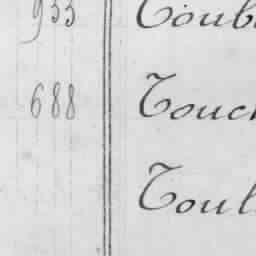 933 Toub
688 Touch
Toul